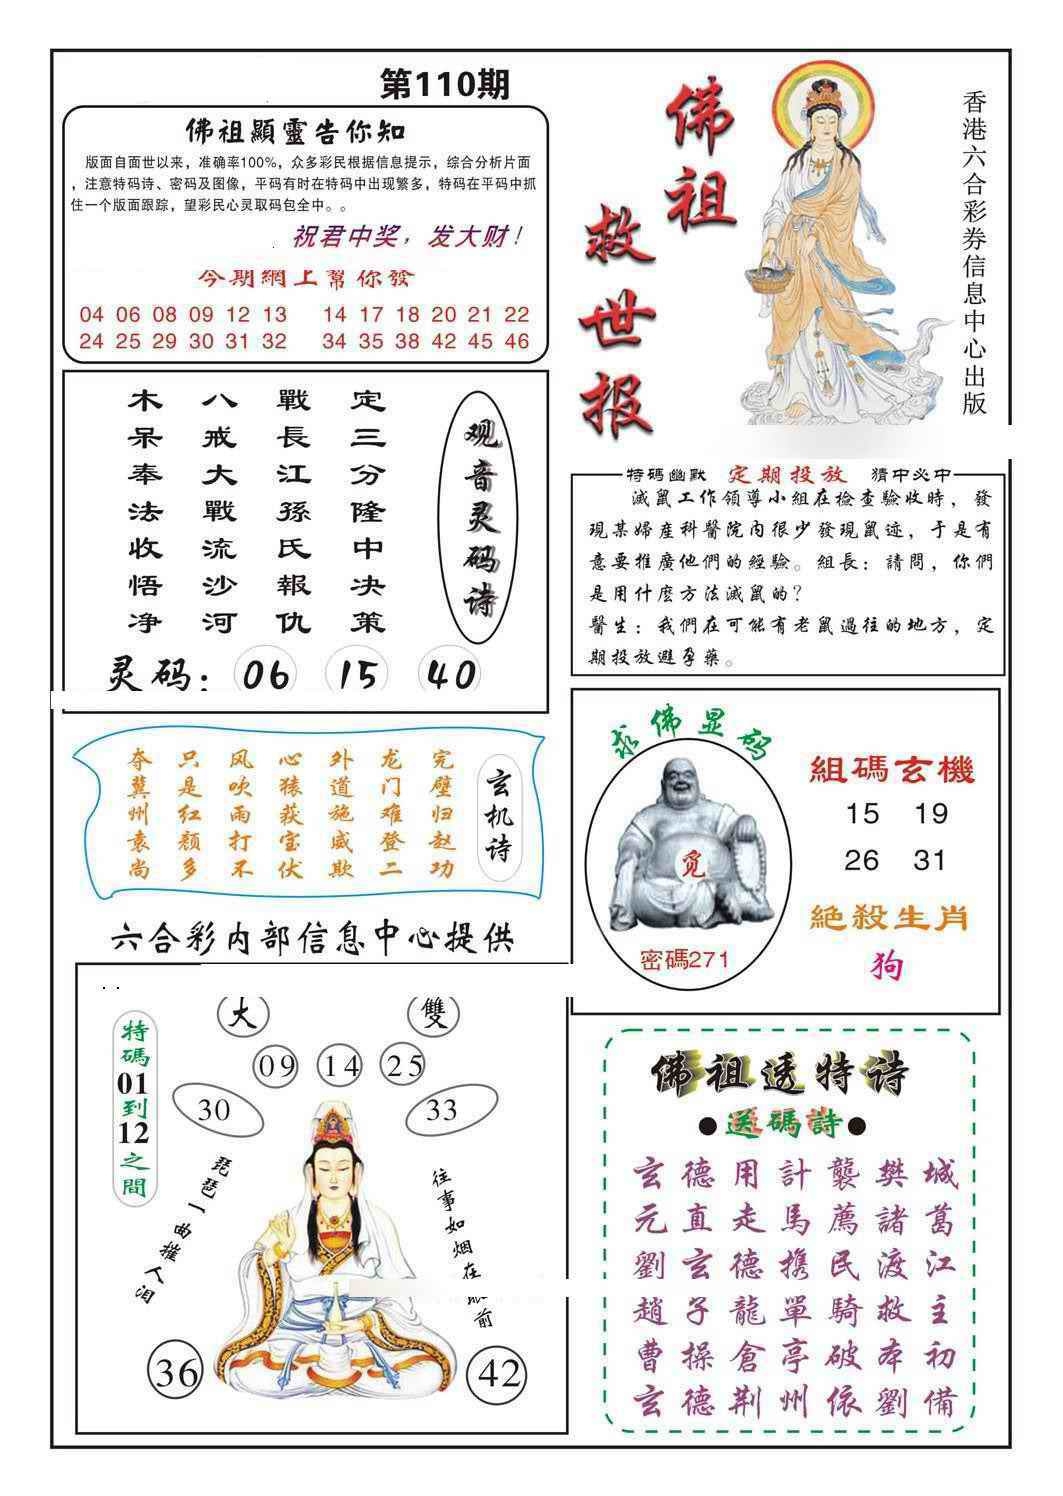 第110期
佛祖顯靈告你知
版面自面世以来，准确率100%，众多彩民根据信息提示，综合分析片面
，注意特码诗、密码及图像，平码有时在特码中出现繁多，特码在平码中抓
住一个版面跟踪，望彩民心灵取码包全中。。
祝君中奖，发大财！
今期網上幫你發
04 06 08 09 12 13 14 17 18 20 21 22
24 25 29 30 31 32 34 35 38 42 45 46
佛祖
救世报
香港六合彩券信息中心出版
观音灵码诗
定三分隆中决策
戰長江孫氏報仇
八戒大戰流沙河
木呆奉法收悟净
灵码：06 15 40
特碼幽默 定期投放 猜中必中
滅鼠工作領導小組在檢查驗收時，發
現某婦產科醫院內很少發現鼠迹，于是有
意要推廣他們的經驗。組長：請問，你們
是用什麼方法滅鼠的？
醫生：我們在可能有老鼠過往的地方，定
期投放避孕藥。
玄机诗
完璧归赵功
龙门难登二
外道施威欺
心猿获宝伏
风吹雨打不
只是红颜多
夺冀州袁尚
求佛显码
觅
密碼271
組碼玄機
15 19
26 31
絕殺生肖
狗
六合彩内部信息中心提供
大 雙
特碼01到12之間
09 14 25
30 33
琵琶一曲摧人泪
往事如烟在眼前
36 42
佛祖透特诗
●送碼詩●
玄德用計襲樊城
元直走馬薦諸葛
劉玄德携民渡江
趙子龍單騎救主
曹操倉亭破本初
玄德荆州依劉備